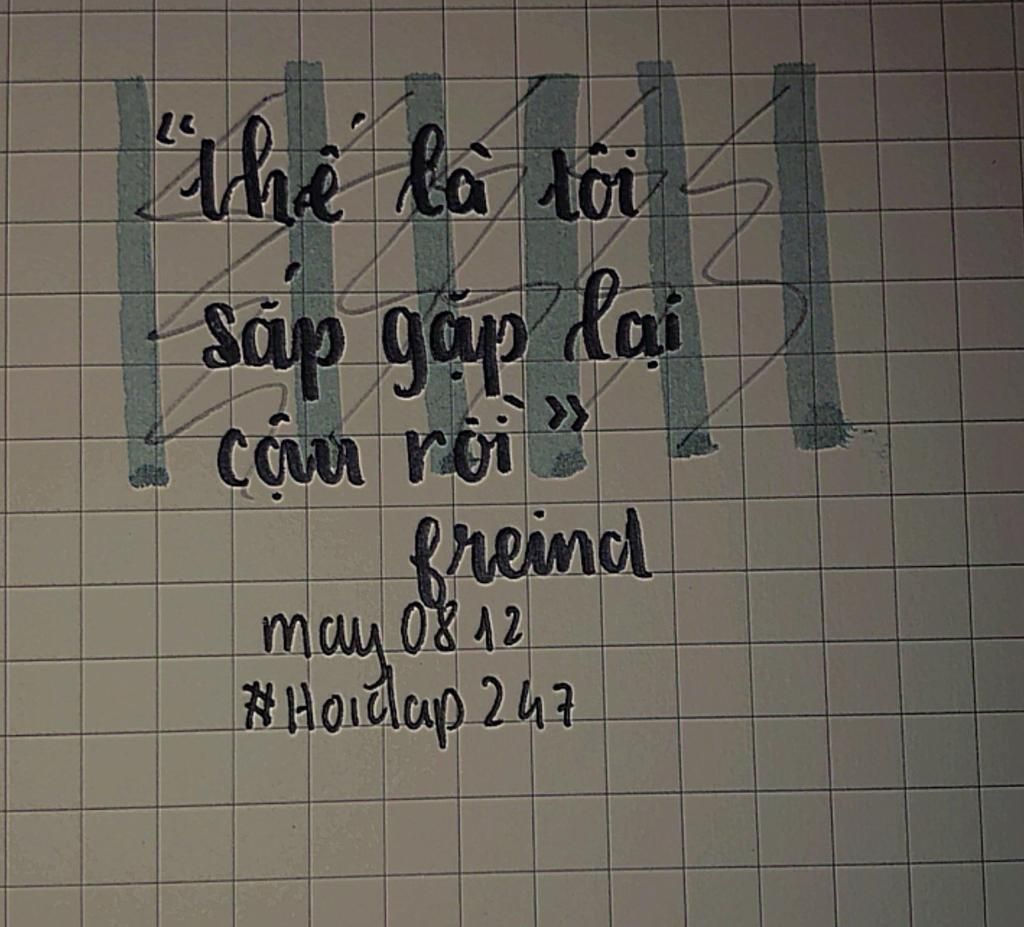 “thế là tôi
sắp gặp lại
cậu rồi”
freind
may 08 12
#Hoidap 247